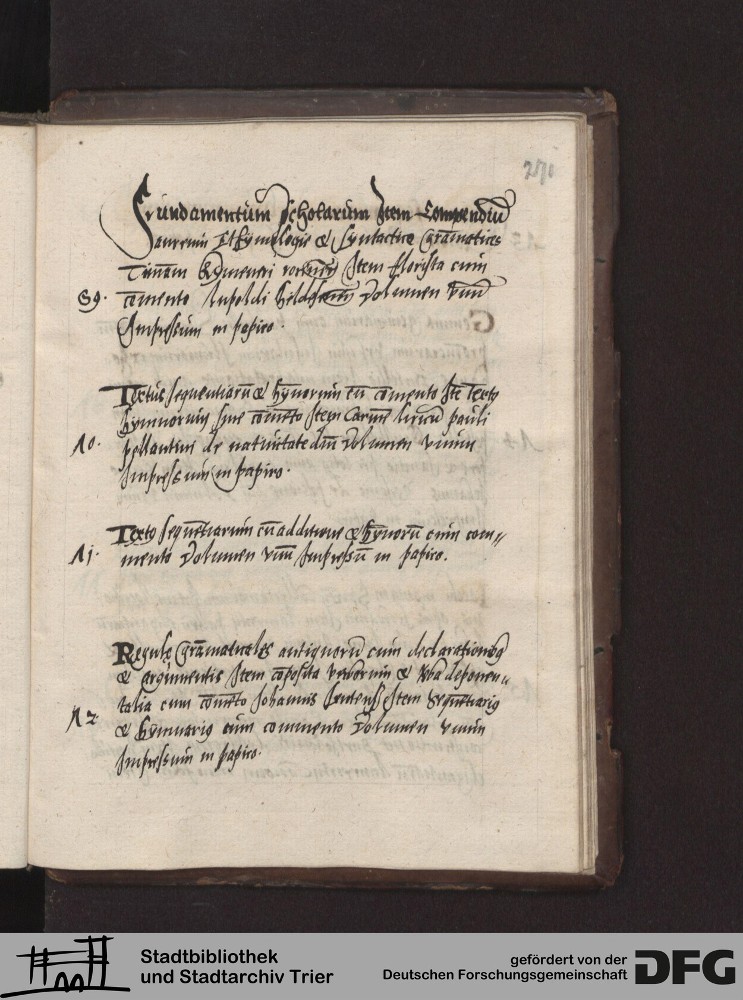 271
Fundamentum scholarum Item Compendiū
aureum Ethymologie & Syntactice grāmatices
Item florista cum
S9. comento volumen vnū
Impressum in papiro.
Textus sequentiarū & hymnorum cū comento Ite Texto
hymnorum sine comēto Item Carmē pauli
10. de natiuitate dnī volumen vnum
Impressum in papiro.
Texto sequētiarum cū additione & hymnorū cum com=
11. mento volumen vnū Impressū in papiro.
Regule grāmaticales antiquorū cum declarationibus
& argumentis Item cōposita verborum & vba deponen=
talia cum comēto Johannis Item Sequētiarius
12. & hymnarius cum commento volumen vnum
Impressum in papiro.
Stadtbibliothek
und Stadtarchiv Trier
gefördert von der
Deutschen Forschungsgemeinschaft
DFG